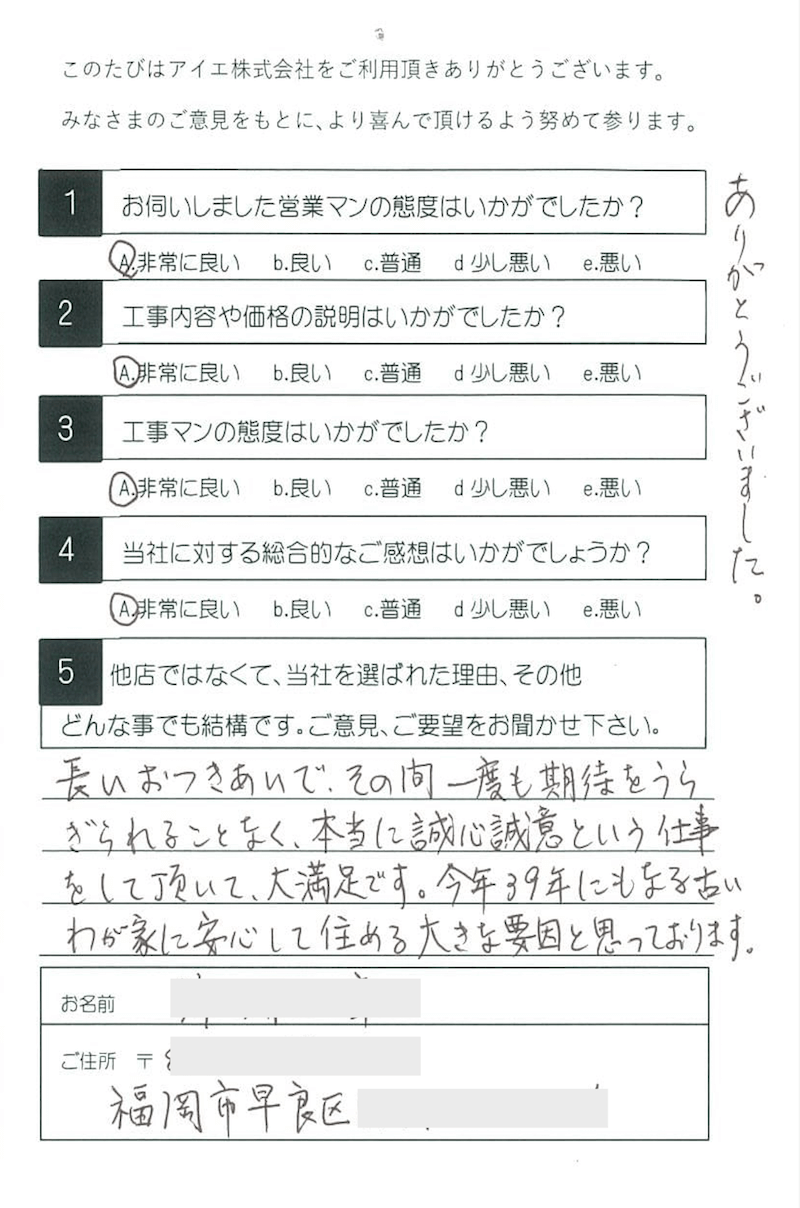 このたびはアイエ株式会社をご利用頂きありがとうございます。
みなさまのご意見をもとに、より喜んで頂けるよう努めて参ります。
1 お伺いしました営業マンの態度はいかがでしたか？
A.非常に良い b.良い c.普通 d 少し悪い e.悪い
2 工事内容や価格の説明はいかがでしたか？
A.非常に良い b.良い c.普通 d 少し悪い e.悪い
3 工事マンの態度はいかがでしたか？
A.非常に良い b.良い c.普通 d 少し悪い e.悪い
4 当社に対する総合的なご感想はいかがでしょうか？
A.非常に良い b.良い c.普通 d 少し悪い e.悪い
5 他店ではなくて、当社を選ばれた理由、その他
どんな事でも結構です。ご意見、ご要望をお聞かせ下さい。
長いおつきあいで、その間一度も期待をうら
ぎられることなく、本当に誠心誠意という仕事
をして頂いて、大満足です。今年39年にもなる古い
わが家に安心して住める大きな要因と思っております。
ありがとうございました。
お名前
ご住所 〒
福岡市早良区